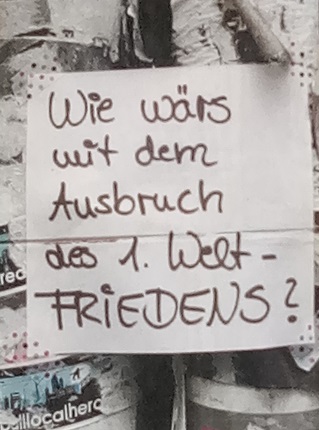 Wie wärs
mit dem
Ausbruch
des 1. Welt-
FRiEDENS?
red
localhero